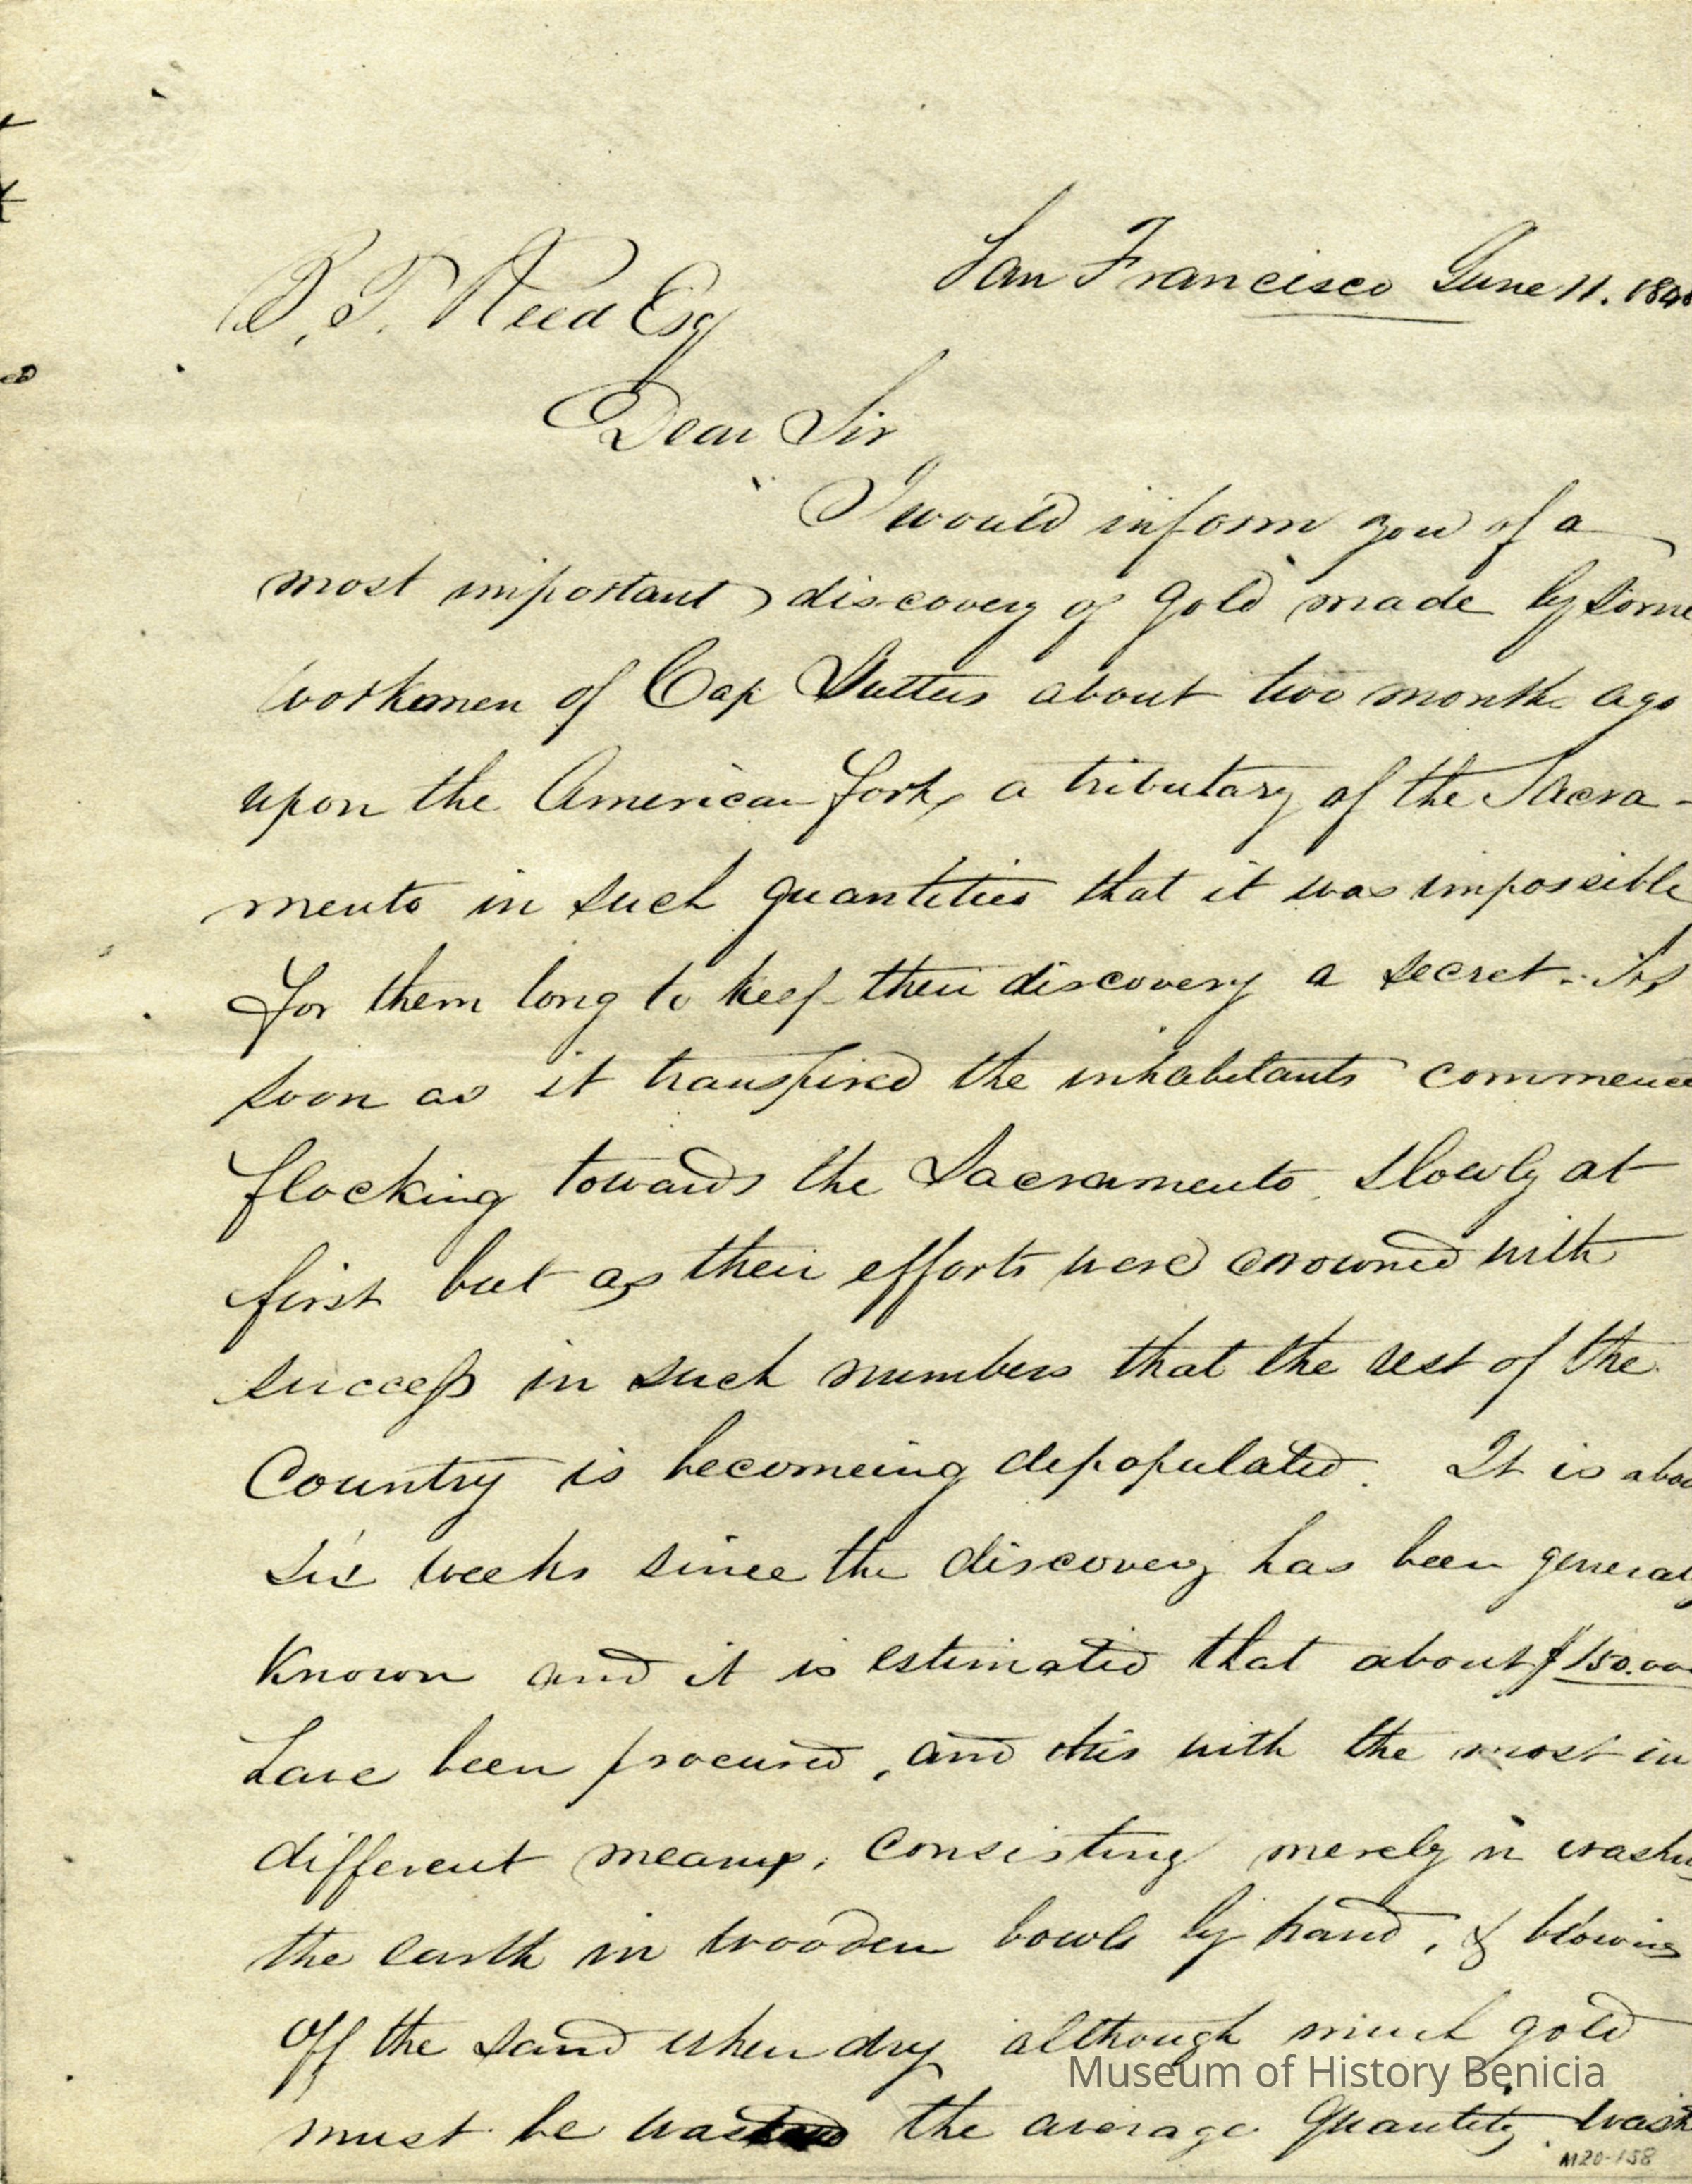 San Francisco June 11. 184
B. T. Reed Esq
Dear Sir
I would inform you of a
most important discovery of gold made by some
workemen of Cap Sutters about two months ago
upon the American fork, a tributary of the Sacra-
mento in such quantities that it was impossible
for them long to keep their discovery a secret. As
soon as it transpired the inhabitants commence
flocking towards the Sacramento. Slowly at
first but as their efforts were crowned with
success in such numbers that the rest of the
Country is becomeing depopulated. It is abou
six weeks since the discovery has been general
Known and it is estimated that about $150.00
have been procured, and this with the most in
different means, consisting merely in washi
the earth in wooden bowls by hand, & blowing
off the sand when dry although much gold
must be wasted the average quantity wash
Museum of History Benicia
M20-158